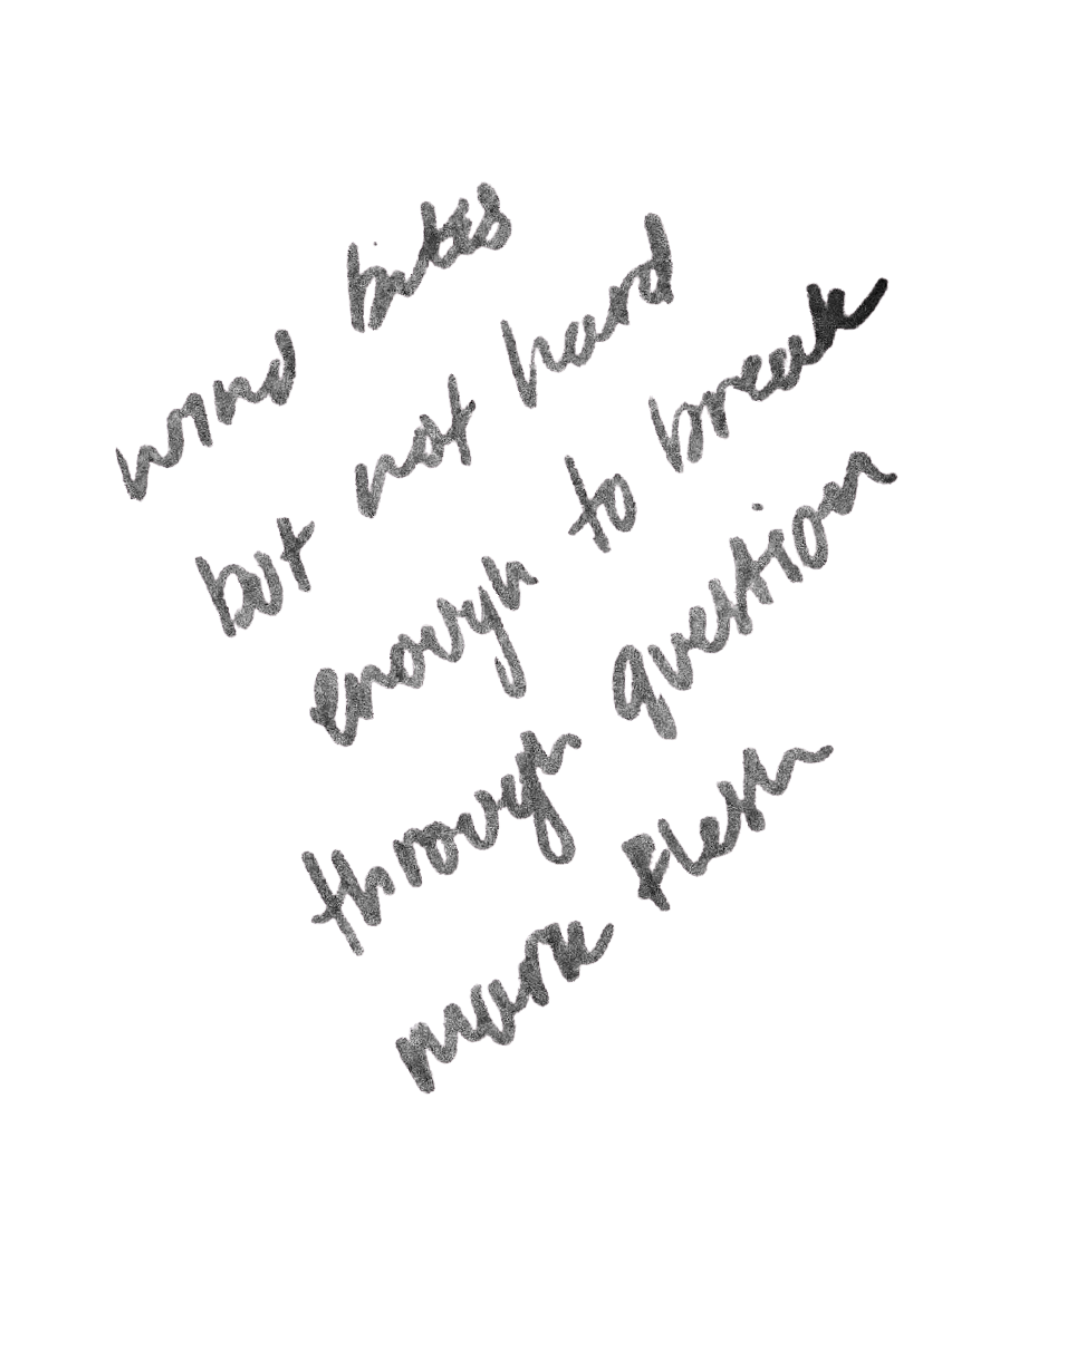 wind bites
but not hard
enough to break
through question
mark flesh